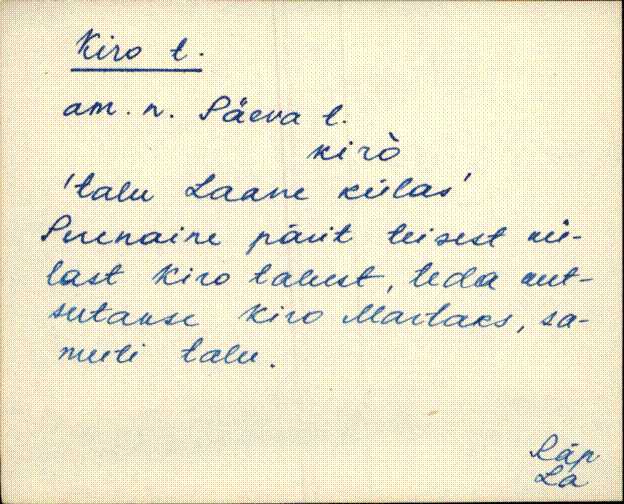 Kiro t.
am. n. Päeva t.
kirò
'talu Laane külas'
Perenaine pärit teisest kü-
last Kiro talust, teda kut-
sutakse Kiro Martaks, sa-
muti talu.
Räp
La